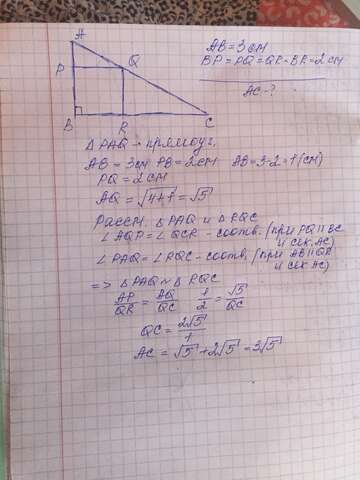 A
P
Q
B
R
C
AB = 3 см
BP = PQ = QR = BR = 2 см
AC - ?
△PAQ - прямоуг.
AB = 3см PB = 2см AB = 3-2 = 1 (см)
PQ = 2см
AQ = √4+1 = √5
Рассм. △PAQ и △RQC
∠AQP = ∠QCR - соотв. (при PQ || BC
и сек. AC)
∠PAQ = ∠RQC - соотв. (при AB || QR
и сек AC)
=> △PAQ ~ △RQC
AP/QR = AQ/QC 1/2 = √5/QC
QC = 2√5/1
AC = √5 + 2√5 = 3√5